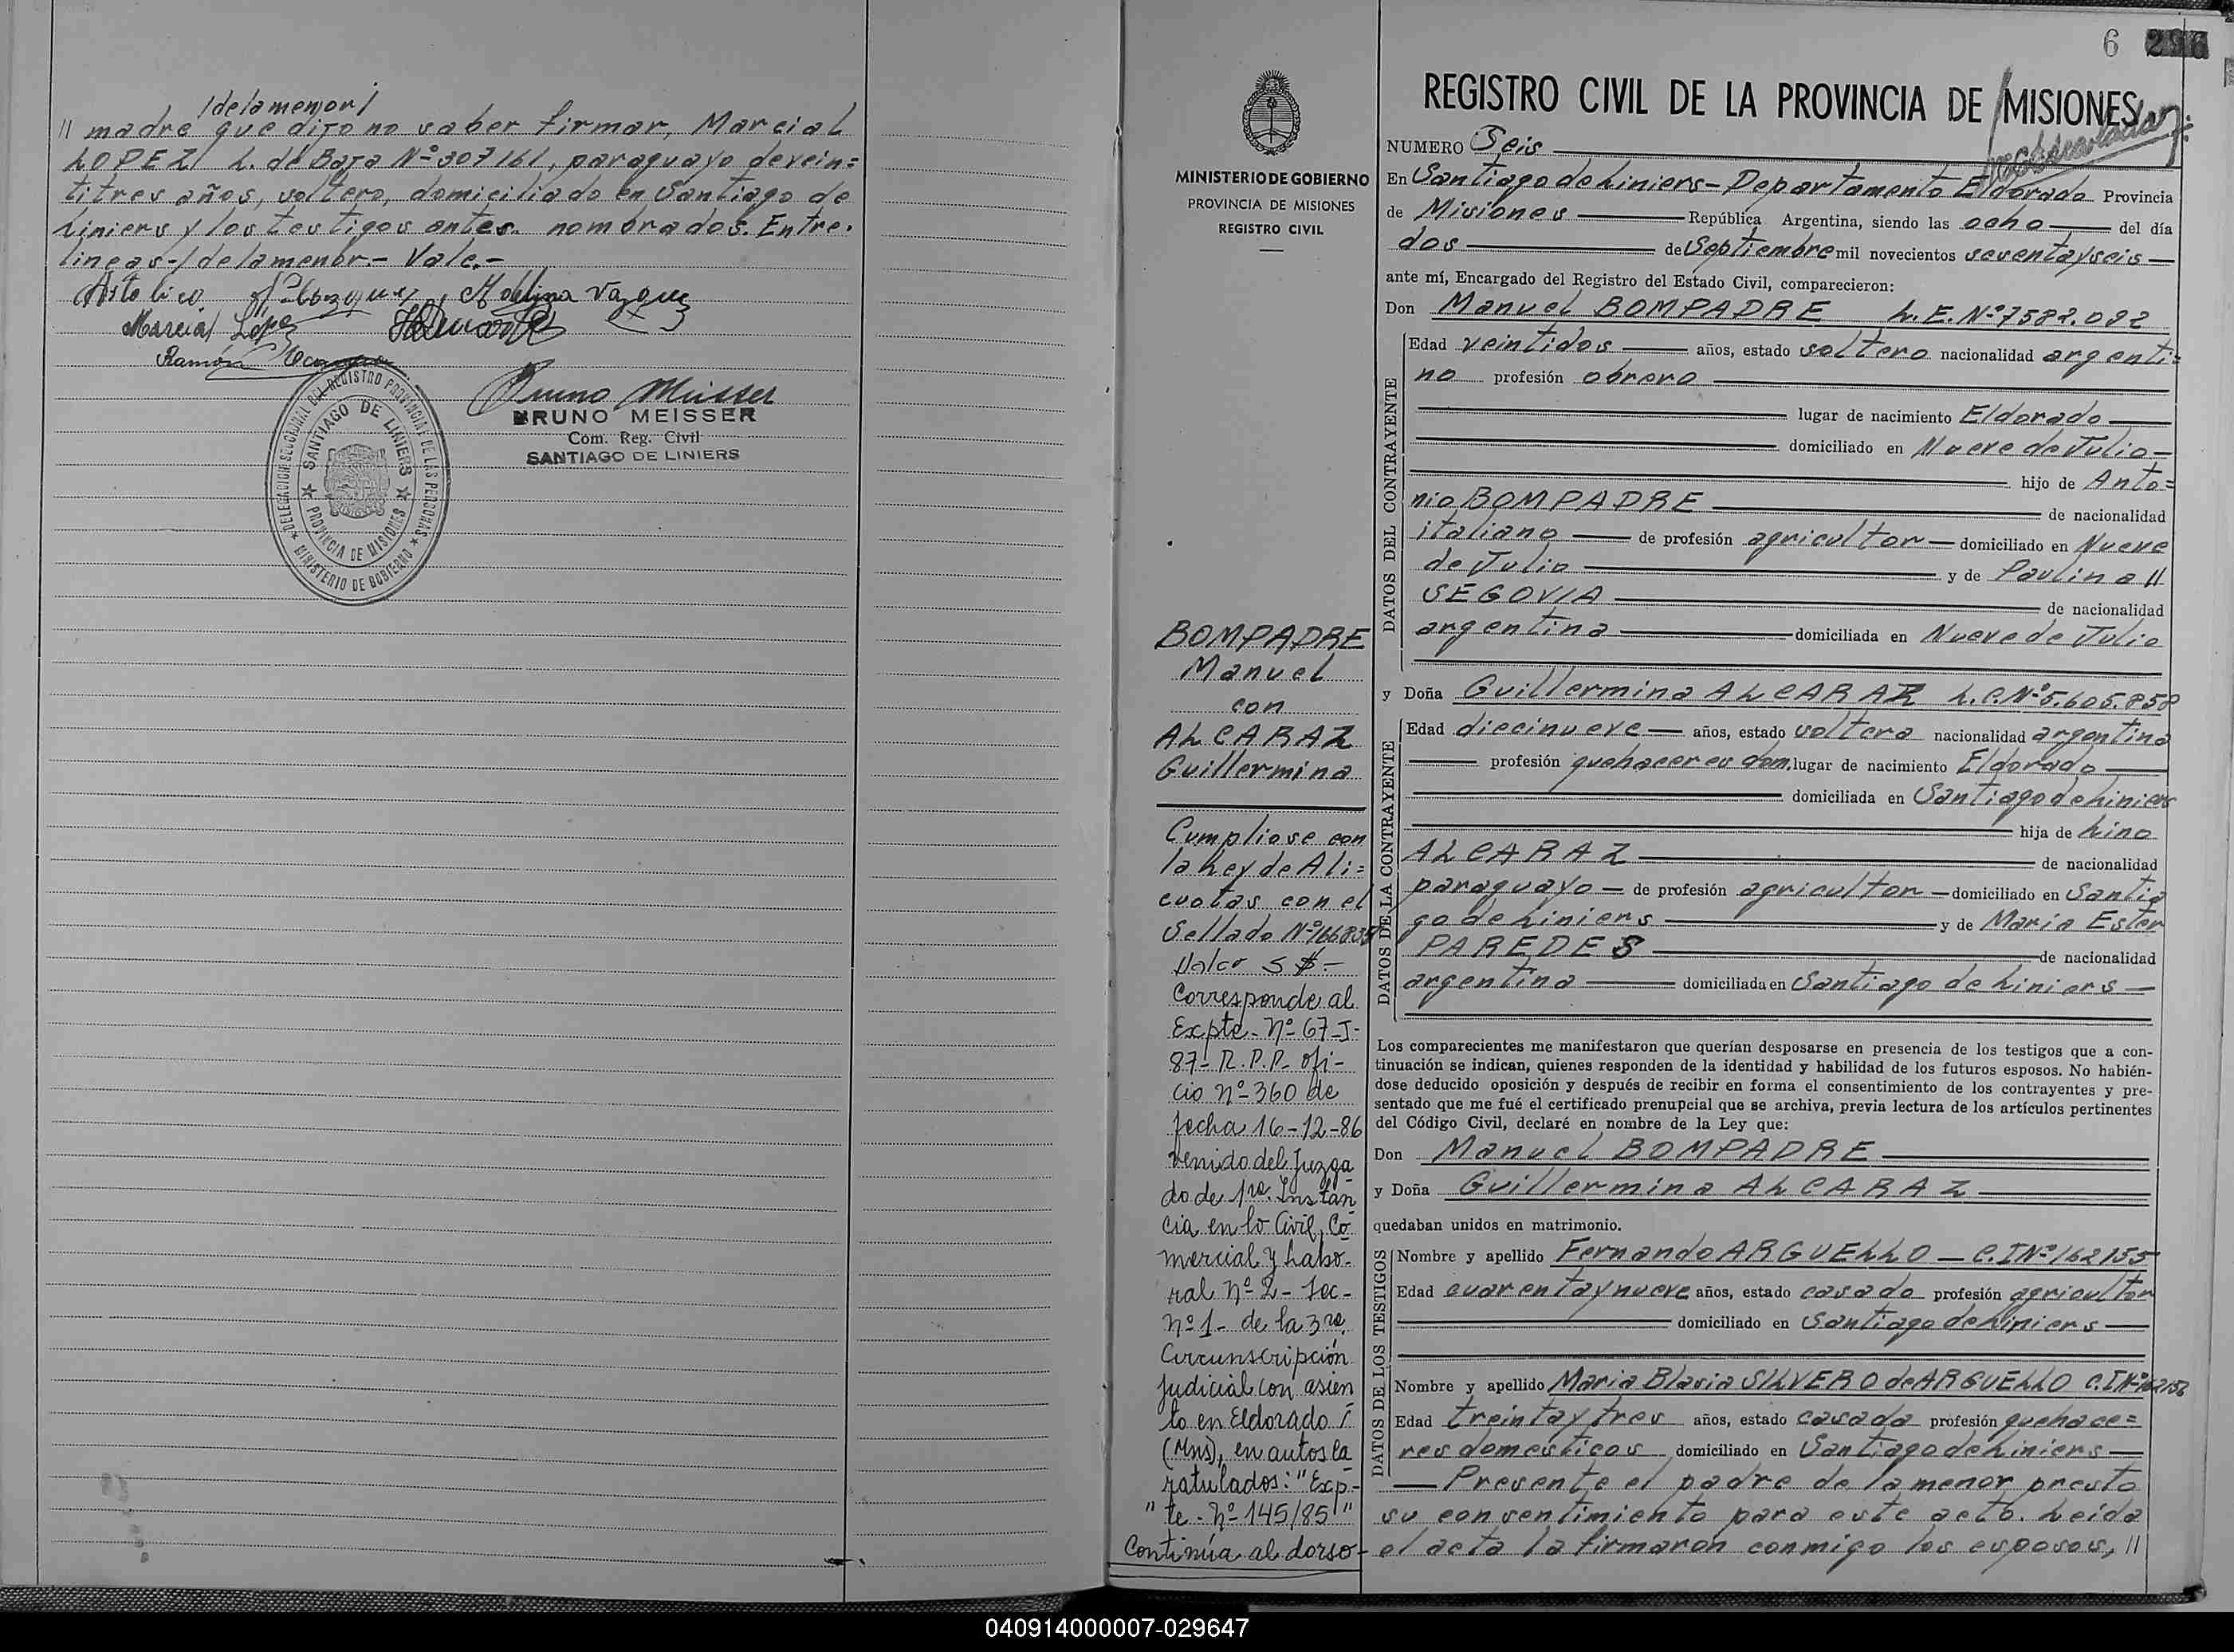 /de la menor/
// madre que dijo no saber firmar, Marcial
LOPEZ L. de Baja Nº 307161, paraguayo de vein=
titres años, soltero, domiciliado en Santiago de
Liniers y los testigos antes nombrados. Entre.
lineas-/de la menor.- Vale.-
Marcial Lopez
Ramon
Bruno Meisser
BRUNO MEISSER
Com. Reg. Civil
SANTIAGO DE LINIERS
DELEGACION SECCIONAL DEL REGISTRO PROVINCIAL DE LAS PERSONAS
MINISTERIO DE GOBIERNO
SANTIAGO DE LINIERS
PROVINCIA DE MISIONES
6
MINISTERIO DE GOBIERNO
PROVINCIA DE MISIONES
REGISTRO CIVIL
BOMPADRE
Manuel
con
ALCARAZ
Guillermina
Cumpliose con
la Ley de Ali=
cuotas con el
Sellado Nº 166835
Valor 5 $-
Corresponde al
Expte. Nº 67-J-
87- R.P.P. ofi-
cio nº 360 de
fecha 16-12-86
venido del Juzga
do de 1ra. Instan
cia en lo Civil, Co
mercial y Labo-
ral Nº 2- Sec-
nº 1- de la 3ra
Circunscripción
Judicial con asien
to en Eldorado
(Mns), en autos ca
ratulados: "Exp-
" te. Nº 145/85"
Continúa al dorso-
REGISTRO CIVIL DE LA PROVINCIA DE MISIONES
NUMERO Seis
En Santiago de Liniers - Departamento Eldorado Provincia
de Misiones República Argentina, siendo las ocho del día
dos de Septiembre mil novecientos sesenta y seis
ante mí, Encargado del Registro del Estado Civil, comparecieron:
Don Manuel BOMPADRE L.E. Nº 7582.092
DATOS DEL CONTRAYENTE
Edad veintidos años, estado soltero nacionalidad argenti=
no profesión obrero
lugar de nacimiento Eldorado
domiciliado en Nueve de Julio-
hijo de Anto=
nio BOMPADRE de nacionalidad
italiano de profesión agricultor domiciliado en Nueve
de Julio y de Paulina //
SEGOVIA de nacionalidad
argentina domiciliada en Nueve de Julio
y Doña Guillermina ALCARAZ L.C. Nº 5.605.858
DATOS DE LA CONTRAYENTE
Edad diecinueve años, estado soltera nacionalidad argentina
profesión quehaceres dom. lugar de nacimiento Eldorado
domiciliada en Santiago de Liniers
hija de Lino
ALCARAZ de nacionalidad
paraguayo de profesión agricultor domiciliado en Santia
go de Liniers y de Maria Ester
PAREDES de nacionalidad
argentina domiciliada en Santiago de Liniers
Los comparecientes me manifestaron que querían desposarse en presencia de los testigos que a con-
tinuación se indican, quienes responden de la identidad y habilidad de los futuros esposos. No habién-
dose deducido oposición y después de recibir en forma el consentimiento de los contrayentes y pre-
sentado que me fué el certificado prenupcial que se archiva, previa lectura de los artículos pertinentes
del Código Civil, declaré en nombre de la Ley que:
Don Manuel BOMPADRE
y Doña Guillermina ALCARAZ
quedaban unidos en matrimonio.
DATOS DE LOS TESTIGOS
Nombre y apellido Fernando ARGUELLO - C.I Nº 162155
Edad cuarenta y nueve años, estado casado profesión agricultor
domiciliado en Santiago de Liniers
Nombre y apellido Maria Blasia SILVERO de ARGUELLO C.I Nº
Edad treinta y tres años, estado casada profesión quehace=
res domesticos domiciliado en Santiago de Liniers
Presente el padre de la menor presto
su consentimiento para este acto. Leida
el acta la firmaron conmigo los esposos, //
040914000007-029647